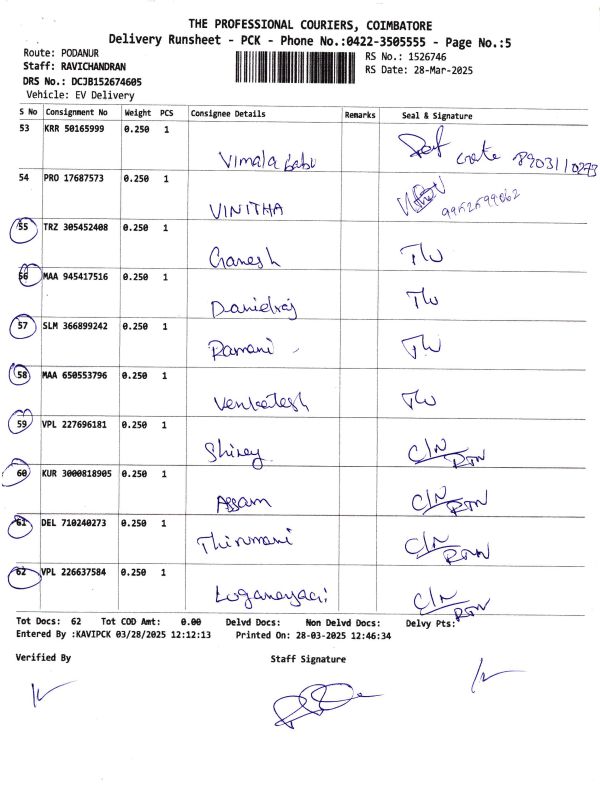 THE PROFESSIONAL COURIERS, COIMBATORE
Delivery Runsheet - PCK - Phone No.:0422-3505555 - Page No.:5
Route: PODANUR
RS No.: 1526746
Staff: RAVICHANDRAN
RS Date: 28-Mar-2025
DRS No.: DCJB152674605
Vehicle: EV Delivery
S No Consignment No Weight PCS Consignee Details Remarks Seal & Signature
53 KRR 50165999 0.250 1
Vimala babu 8903110273
54 PRO 17687573 0.250 1
VINITHA
55 TRZ 305452408 0.250 1
Ganesh
56 MAA 945417516 0.250 1
Danielraj
57 SLM 366899242 0.250 1
Ramani
58 MAA 650553796 0.250 1
Venkatesh
59 VPL 227696181 0.250 1
C/N RTN
60 KUR 3000818905 0.250 1
Assam C/N RTN
61 DEL 710240273 0.250 1
Thirumani C/N RTN
62 VPL 226637584 0.250 1
Loganayagi C/N RTN
Tot Docs: 62 Tot COD Amt: 0.00 Delvd Docs: Non Delvd Docs: Delvy Pts:
Entered By :KAVIPCK 03/28/2025 12:12:13 Printed On: 28-03-2025 12:46:34
Verified By Staff Signature